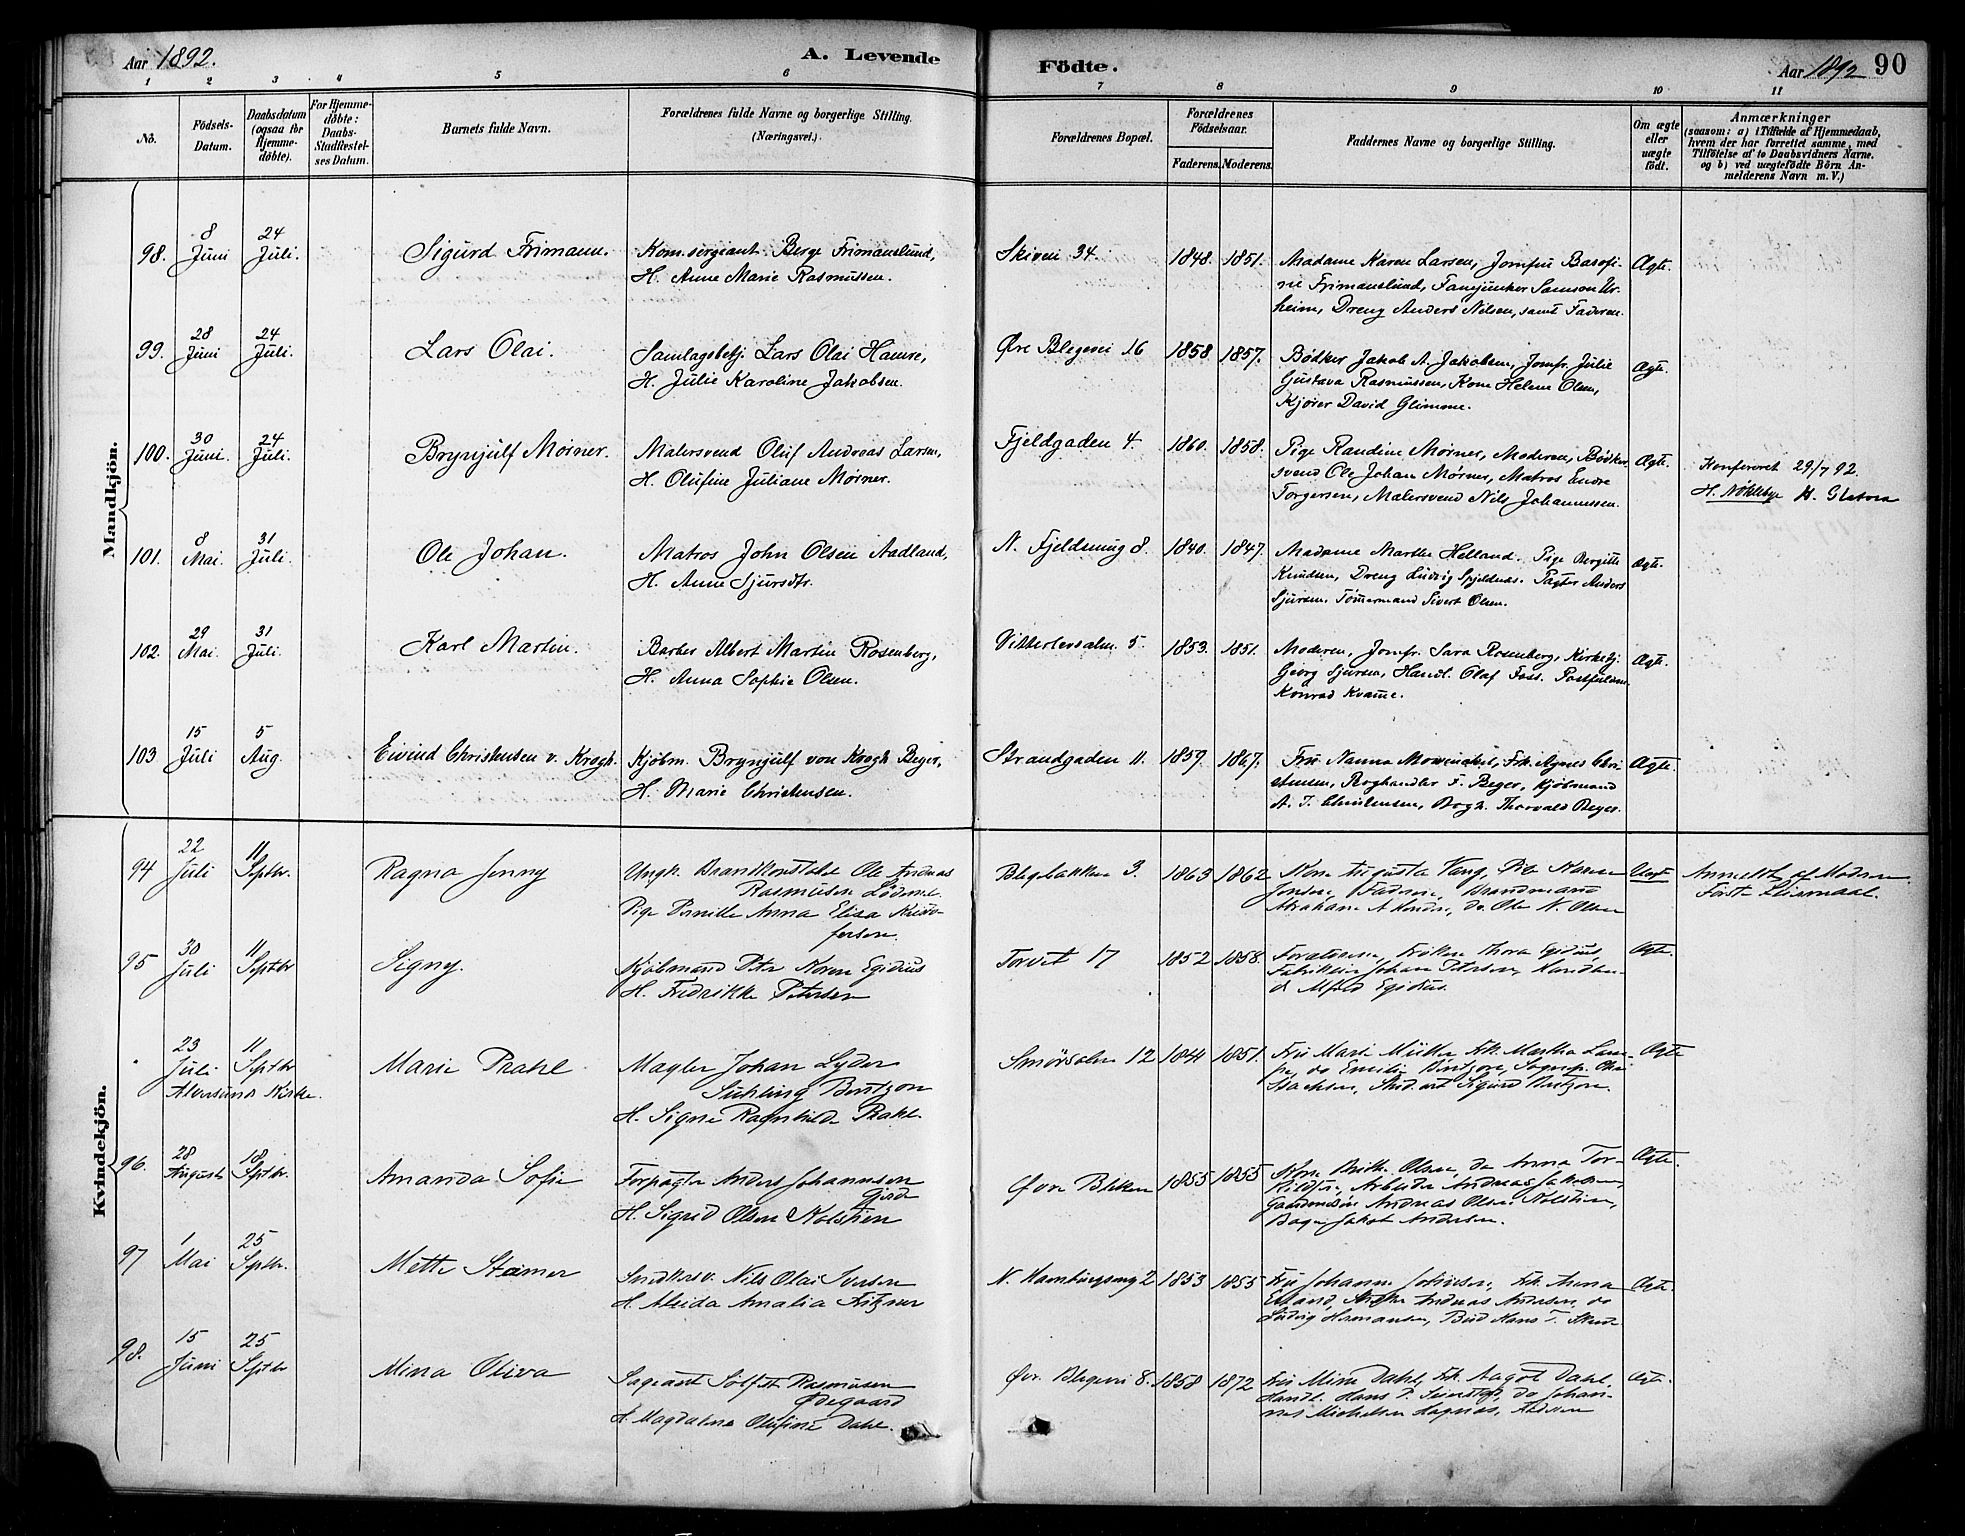 Aar 1892.
A. Levende
Födte.
Aar 1892
90
1 2 3 4 5 6 7 8 9 10 11
No.
Födsels-Datum.
Daabsdatum (ogsaa for Hjemme-döbte).
For Hjemme-döbte: Daabs-Stadfæstel-ses Datum.
Barnets fulde Navn.
Forældrenes fulde Navne og borgerlige Stilling.
(Næringsvei.)
Forældrenes Bopæl.
Forældrenes Födselsaar.
Faderens. Moderens.
Faddernes Navne og borgerlige Stilling.
Om ægte eller uægte födt.
Anmærkninger
(saasom: a) i Tilfælde af Hjemmedaab, hvem der har forrettet samme, med Tilföielse af to Daabsvidners Navne, og b) ved uægtefödte Börn Anmelderens Navn m. V.)
Mandkjön.
98. 8 Juni 24 Juli. Sigurd Frimann. Kom.sergeant Berge Frimanslund,
H. Anne Marie Rasmussen.
Skiven 34. 1848. 1851. Madame Karen Larsen, Jomfru Basofi-
ne Frimanslund, Fanejunker Samson Ur-
heim, Dreng Anders Nilsen, samt Faderen. Ægte.
99. 28 Juni 24 Juli. Lars Olai. Samlagsbetj. Lars Olai Hamre,
H. Julie Karoline Jakobsen.
Øvre Blegevei 16 1858 1857. Bødker Jakob A. Jakobsen, Jomfr. Julie
Gustava Rasmussen, Kone Helene Olsen,
Kjører David Glimme. Ægte.
100. 30 Juni. 24 Juli. Brynjulf Mørner. Malersvend Oluf Andreas Larsen,
H. Olufine Juliane Mørner.
Fjeldgaden 4. 1860. 1858. Pige Randine Mørner, Moderen, Bødker
svend Ole Johan Mørner, Matros Endre
Torgersen, Malersvend Nils Johannessen. Ægte.
Konfereret 29/7 92.
H. Nøkleby
101. 8 Mai. 31 Juli. Ole Johan. Matros John Olsen Aadland,
H. Anne Sjursdtr.
N. Fjeldsmug 8. 1840. 1847. Madame Marthe Helland. Pige Bergitte
Knudsen, Dreng Ludvig Spjeldnæs. Pagter Anders
Sjursen, Tömmermand Sivert Olsen. Ægte.
102. 29 Mai. 31 Juli. Karl Martin. Barber Albert Martin Rosenberg,
H. Anna Sophie Olsen.
5. 1853. 1851. Moderen, Jomfr. Sara Rosenberg, Kirkebtj.
Georg Sjursen, Handl. Olaf Foss.
Konrad Kvamme. Ægte.
103 15 Juli 5 Aug. Eivind Christensen v. Krogh. Kjøbm. Brynjulf von Krogh Beyer,
H. Marie Christensen.
Strandgaden 11. 1859. 1867. Fru Nanna Mowinckel, Frk. Agnes Chri-
stensen, Boghandler F. Beyer, Kjøbmand
A. J. Christensen, Bogh. Thorvald Beyer. Ægte.
Kvindekjön.
94 22 Juli 11 Septbr. Ragna Jenny Ungk. Brandkonstabel Ole Andreas
Rasmusen
Pige Pernille Anna Elisa Kristo-
fersen.
Blegebakken 3. 1863 1862 Kone Augusta Vang, Pige Karen
Jensen, Faderen, Brandmand
do Ole N. Olsen Uægt
Anmeldt af Moderen.
Først Leiermaal.
95 30 Juli 11 Septbr Signy. Kjøbmand Peter Koren Egidius
H. Fredrikke Petersen
Torvet 17 1852 1858. Forældrene, Frøken Thora Egidius,
Fabrikeier Johan Petersen,
Alfred Egidius. Ægte.
23 Juli 11 Septbr Alversund Kirke. Marie Prahl Mægler Johan Lyder
Suhling Bertzon
H. Signe Ragnhilde Prahl.
Smørsalm 12 1844 1851. Fru Marie Müller, Frk. Martha Lam-
pe, do Emilie Bertzon,
Stud. art Sigurd Bertzon. Ægte
96. 28 August 18 Septbr. Amanda Sofie Forpagter Anders Johannsen
H. Sigrid Olsen Kolstien
Øvre Bleken 1855 1855 Kone Brithe Olsen, do Anna Tor-
Arbeider Andreas Jakobsen,
Gaardmand Andreas Olsen Kolstien,
Bager Jakob Andersen. Ægte.
97 1 Mai 25 Septbr. Mette Stamer Snedkersv. Nils Olai Iversen
H. Aleida Amalia Fritzner
N. Hamburgsmug 2 1853 1855 Fru Johanne Johnsen, Frk. Anna
Andreas Andersen, do
Ludvig Hermansen, Bud Hans T. Ægte.
98. 15 Juni 25 Septbr Mina Oliva Sergeant Sølfest Rasmussen
Ødegaard
H. Magdalena Olufine Dahl.
Øvr. Blegevei 8. 1858 1872 Fru Mina Dahl, Frk. Aagot Dahl,
Handl. Hans P. do Johan-
nes Michelsen Ægte.